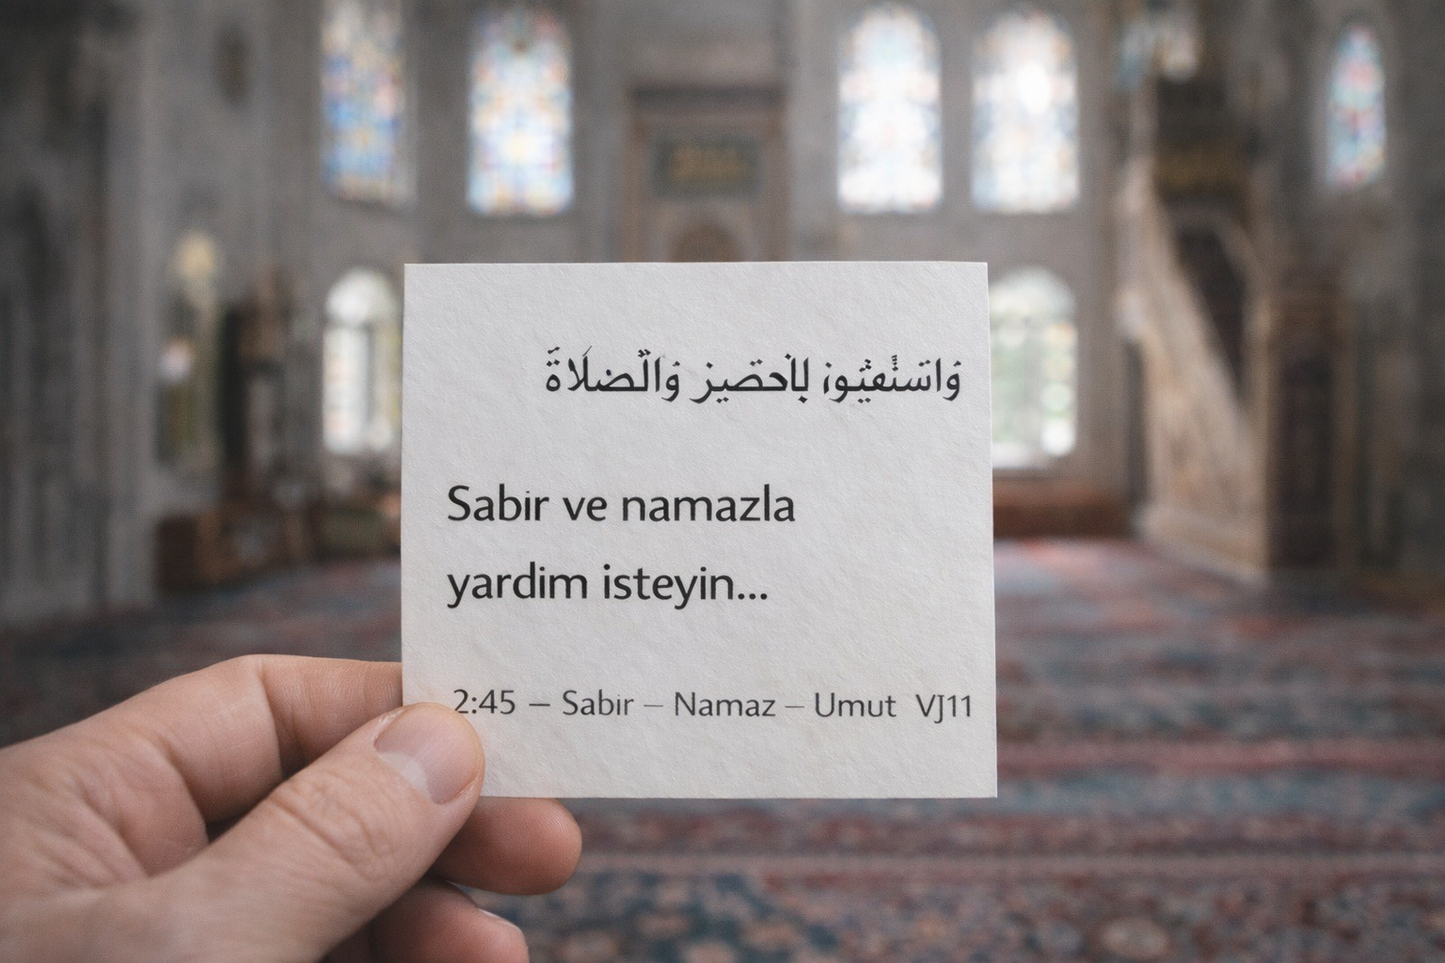 وَاتسنُعيُوز لِاَحصَيز وَالّضلَاةَ
Sabir ve namazla
yardim isteyin...
2:45 – Sabir – Namaz – Umut VJ11